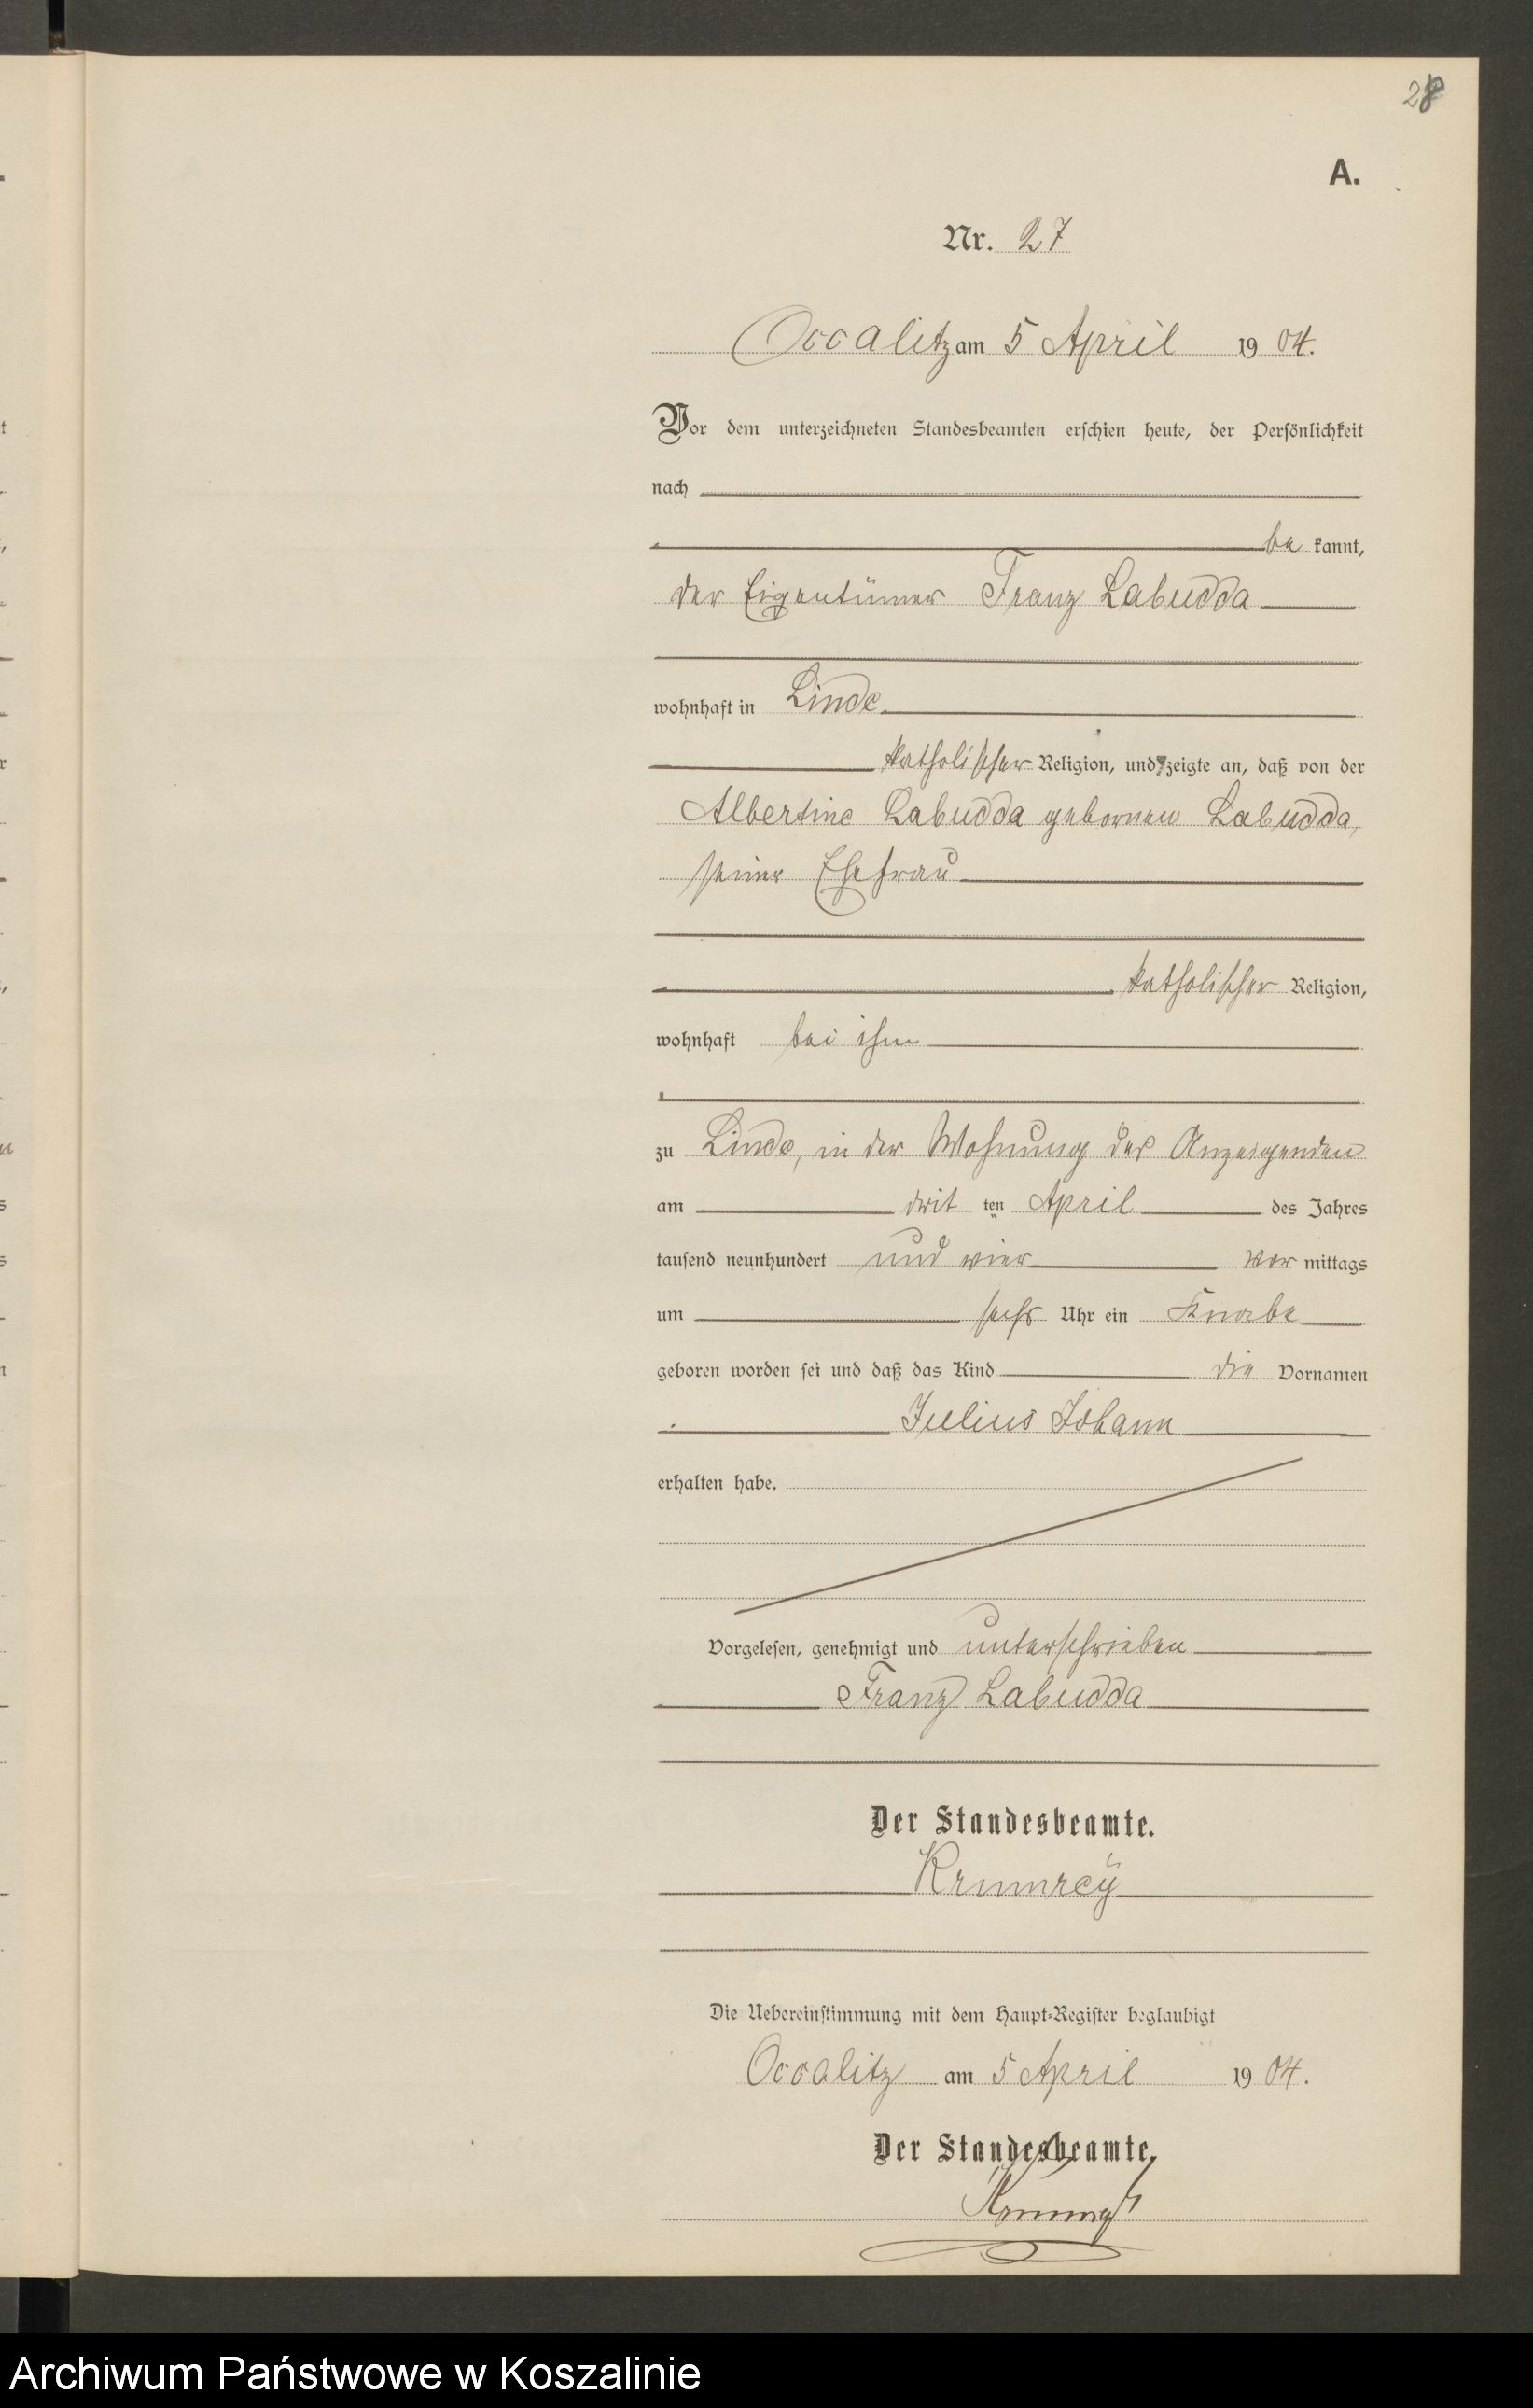 28
A.
Nr. 27
Occalitz am 5 April 1904.
Vor dem unterzeichneten Standesbeamten erschien heute, der Persönlichkeit
nach
be kannt,
der Eigentümer Franz Labudda
wohnhaft in Linde
katholischer Religion, und zeigte an, daß von der
Albertine Labudda gebornen Labudda,
seiner Ehefrau
katholischer Religion,
wohnhaft bei ihm
zu Linde, in der Wohnung des Anzeigenden
am drit ten April des Jahres
tausend neunhundert und vier Vor mittags
um sechs Uhr ein Knabe
geboren worden sei und daß das Kind die Vornamen
Julius Johann
erhalten habe.
Vorgelesen, genehmigt und unterschrieben
Franz Labudda
Der Standesbeamte.
Krumreÿ
Die Uebereinstimmung mit dem Haupt-Register beglaubigt
Occalitz am 5 April 1904.
Der Standesbeamte.
Krumrey
Archiwum Państwowe w Koszalinie